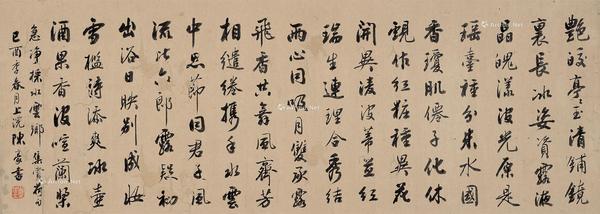 艷皎亭亭玉清鋪鏡
裏長冰姿資露液
晶魄漾波光原是
瑤臺種分來水國
香瓊肌僊子化休
觀作紅粧種異花
開異凌波蒂並紅
瑞生連理合秀結
兩心同吸月雙承露
飛香共舞風齊芳
相繾綣攜手水雲
中思節同君子風
流比六郎露疑初
出浴日映別成妝
雪檻詩添爽冰壺
酒果香波喧蘭槳
急淨採水雲鄉 集賞荷句
己酉季春月上浣陳書